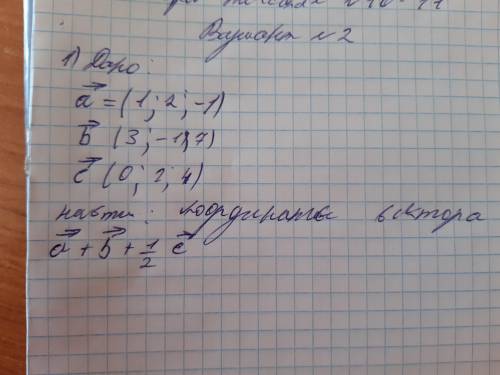 Вариант №2
1) Дано:
a⃗ = (1; 2; -1)
b⃗ (3; -1; 7)
c⃗ (0; 2; 4)
найти: координаты вектора
a⃗ + b⃗ + 1/2 c⃗